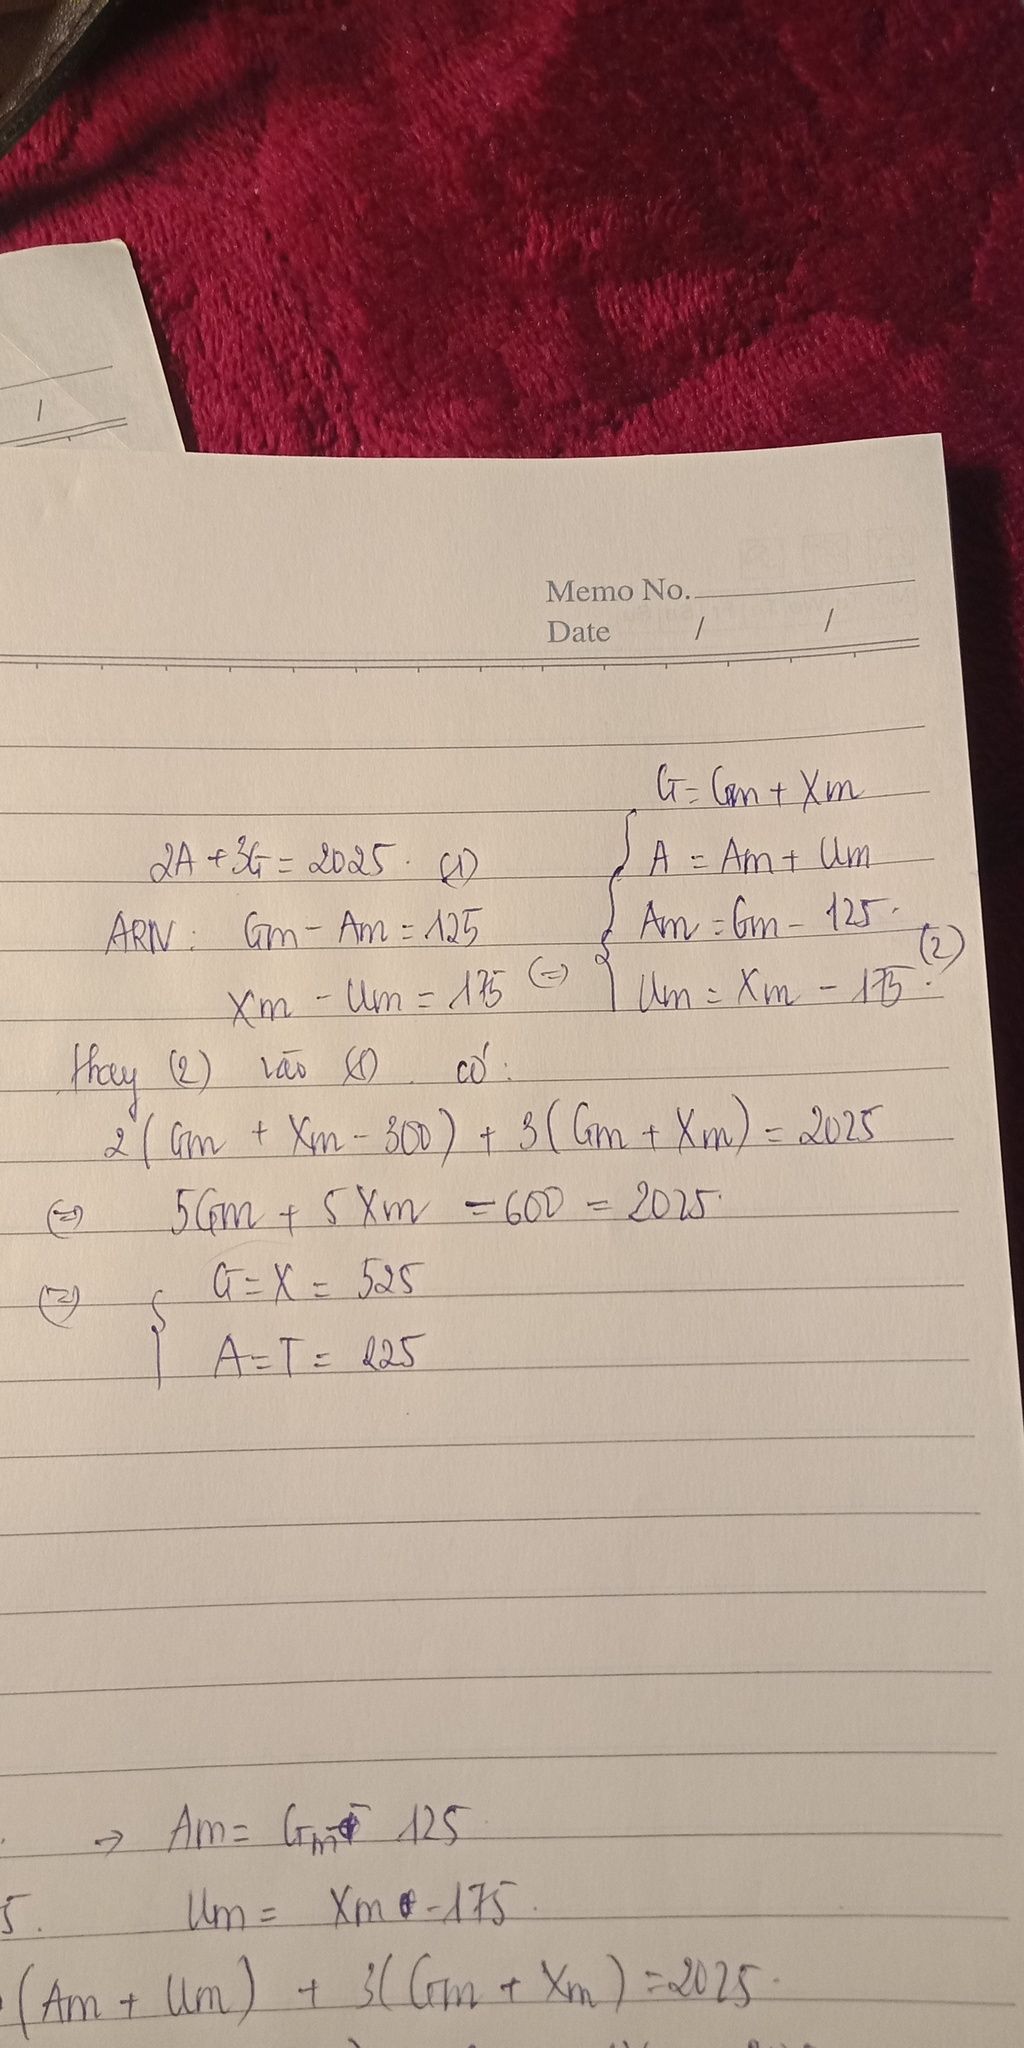 Memo No.
Date / /
G = Gm + Xm
2A + 3G = 2025. (1)
A = Am + Um
ARN: Gm - Am = 125
Am = Gm - 125.
Xm - Um = 175 (=)
Um = Xm - 175. (2)
thay (2) vào (1) có:
2(Gm + Xm - 300) + 3(Gm + Xm) = 2025
(=) 5Gm + 5Xm = 600 = 2025.
(=) G = X = 525
A = T = 225
→ Am = Gm - 125
5. Um = Xm - 175.
(Am + Um) + 3(Gm + Xm) = 2025.